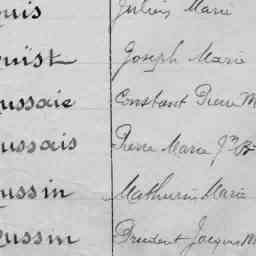 uis Julien Marie
uist Joseph Marie
ussaie Constant Pierre M
ussais Pierre Marie Jn Bt
ussin Mathurin Marie
ussin Prudent Jacques M